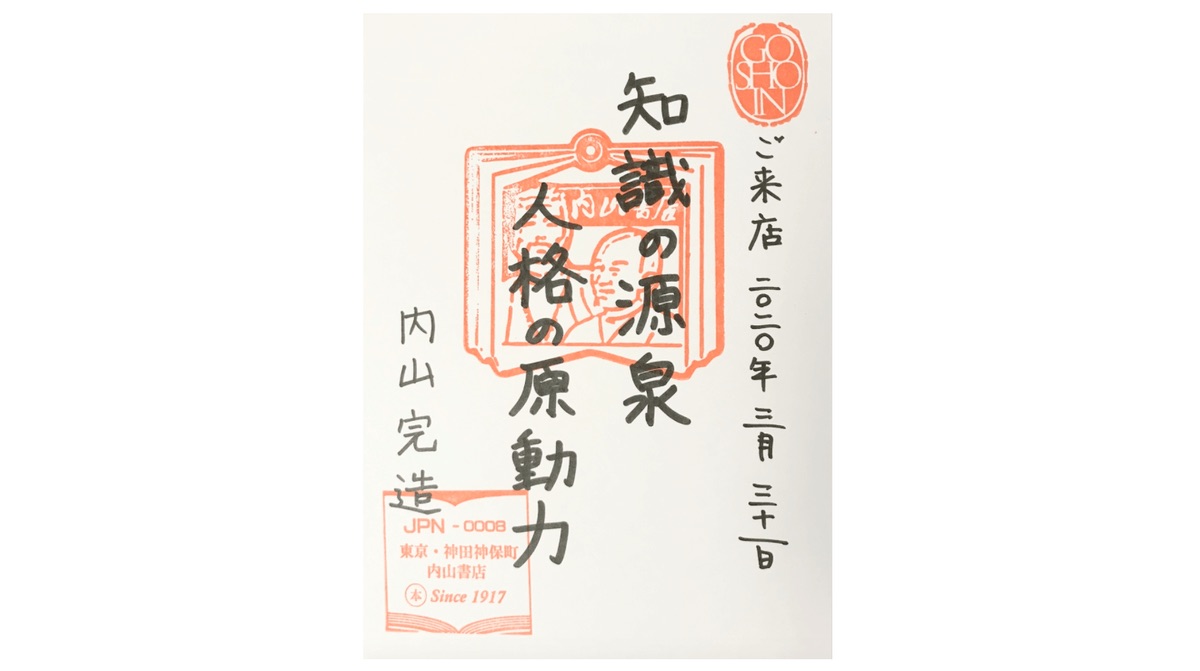 GO
SHO
IN
ご来店 二〇二〇年 三月 三十一日
知識の源泉
人格の原動力
内山完造
内山書店
JPN - 0008
東京・神田神保町
内山書店
本 Since 1917